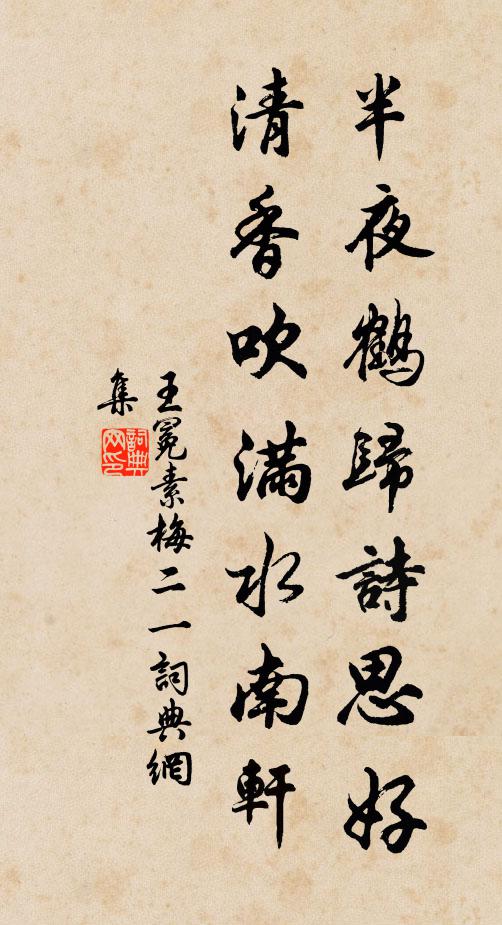 半夜鶴歸詩思好
清香吹滿水南軒
王冕素梅二一詞典網
集
詞典
网印